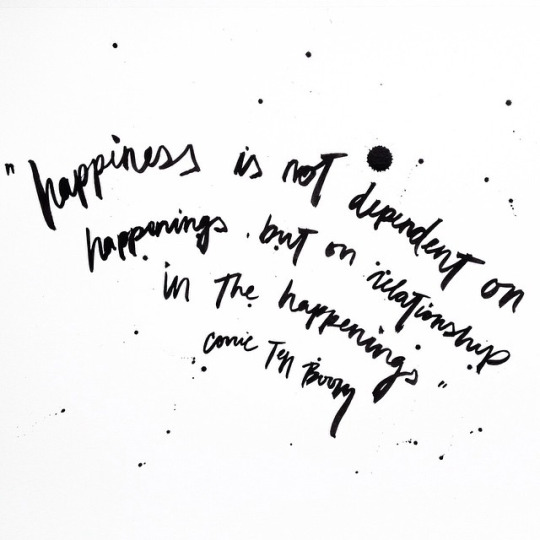 "happiness is not dependent on
happenings, but on relationship
in the happenings"
Corrie Ten Boom